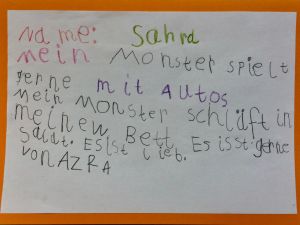 Name: Sahra
mein Monster spielt
gerne mit Autos
Mein Monster schläft in
meinem Bett. Es isst gerne
Salat. Es ist lieb.
von AZRA